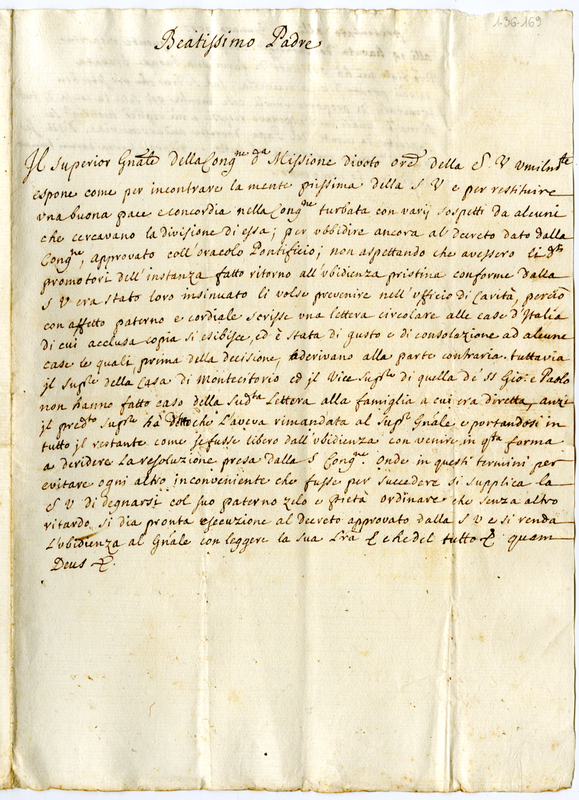 1-36-169
Beatissimo Padre
Il Superior Gnãle della Congne da Missione divoto orẽ della S. V. umilmte
espone come per incontrare la mente piissima della S V e per restituire
vna buona pace e concordia nella Congne turbata con varij sospetti da alcuni
che cercavano la divisione di essa; per vbbidire ancora al decreto dato dalla
Congne, approvato coll'oracolo Pontificio; non aspettando che avessero li di
promotori dell'instanza fatto ritorno all'vbidienza pristina conforme dalla
S V era stato loro insinuato li volse prevenire nell'ufficio di Carità, perciò
con affetto paterno e cordiale scrisse vna lettera circolare alle case d'Italia
di cui acclusa copia si esibisce, ed è stata di gusto e di consolazione ad alcune
case le quali, prima della decisione, aderivano alla parte contraria. tuttavia
il Supre della Casa di Montecitorio ed il Vice Supre di quella de' SS Gio: e Paolo
non hanno fatto caso della Sudta Lettera alla famiglia a cui era diretta, anzi
il predto Supre hà detto che l'aveva rimandata al Supr Gnãle e portandosi in
tutto il restante come se fusse libero dall'vbidienza con venire in qta forma
a deridere la resoluzione presa dalla S Congne. Onde in questi termini per
evitare ogni altro inconveniente che fusse per succedere si supplica la
S V di degnarsi col suo paterno zelo e pietà ordinare che senza altro
ritardo si dia pronta esecuzione al decreto approvato dalla S V e si renda
l'vbidienza al Gnãle con leggere la sua lrã &c che del tutto &c quam
Deus &c.